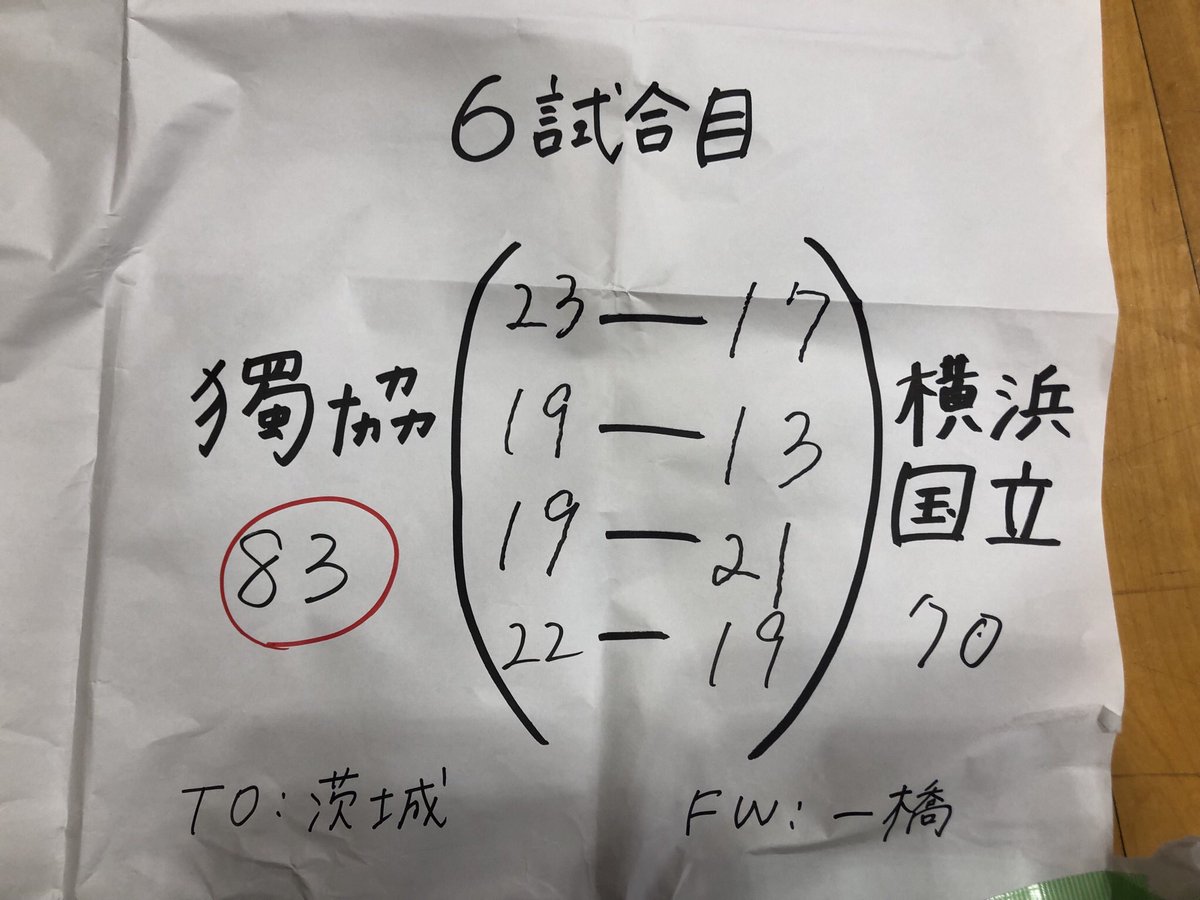 6試合目
獨協
83
23ー17
19ー13
19ー21
22ー19
横浜
国立
70
TO:茨城
FW:一橋